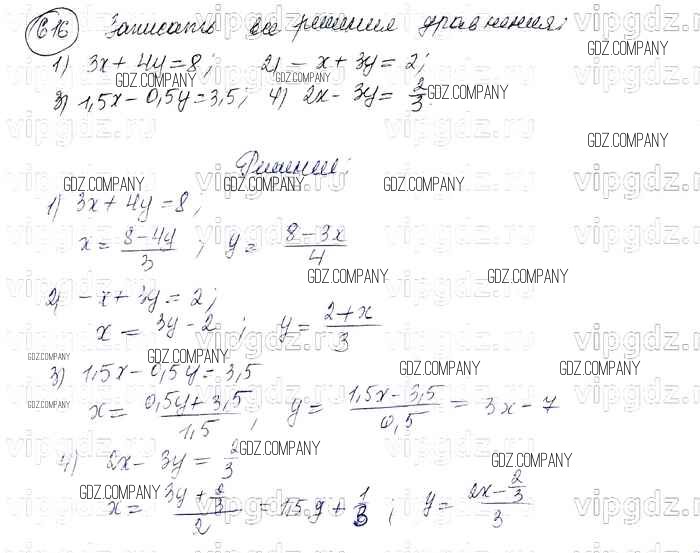 616 Записать все решения уравнения:
1) 3x + 4y = 8; 2) -x + 3y = 2;
GDZ.COMPANY
3) 1,5x - 0,5y = 3,5; 4) 2x - 3y = 2/3.
Решение:
1) 3x + 4y = 8;
x = (8 - 4y)/3 ; y = (8 - 3x)/4
2) -x + 3y = 2;
x = 3y - 2 ; y = (2 + x)/3
3) 1,5x - 0,5y = 3,5
x = (0,5y + 3,5)/1,5 y = (1,5x - 3,5)/0,5 = 3x - 7
4) 2x - 3y = 2/3
x = (3y + 2/3)/2 = 1,5y + 1/3 ; y = (2x - 2/3)/3
vipgdz.ru